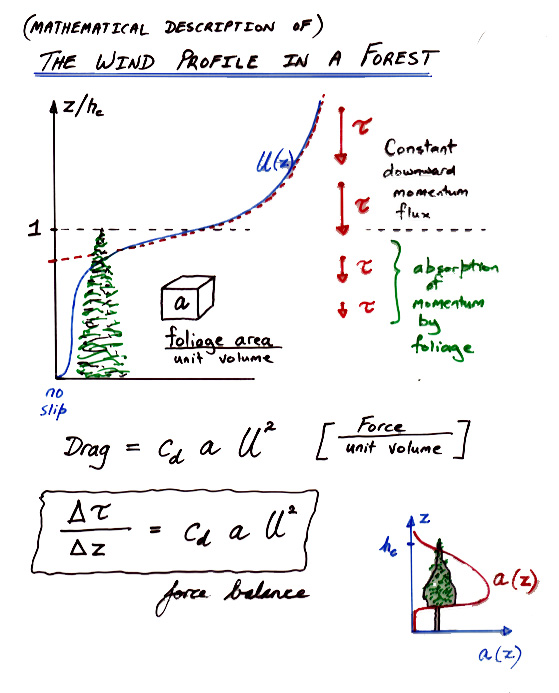 (MATHEMATICAL DESCRIPTION OF)
THE WIND PROFILE IN A FOREST
z/hc
U(z)
τ
Constant
downward
momentum
flux
τ
1
τ
τ
absorption
of
momentum
by
foliage
a
foliage area
unit volume
no
slip
Drag = cd a U² [Force / unit volume]
Δτ / Δz = cd a U²
force balance
z
hc
a(z)
a(z)